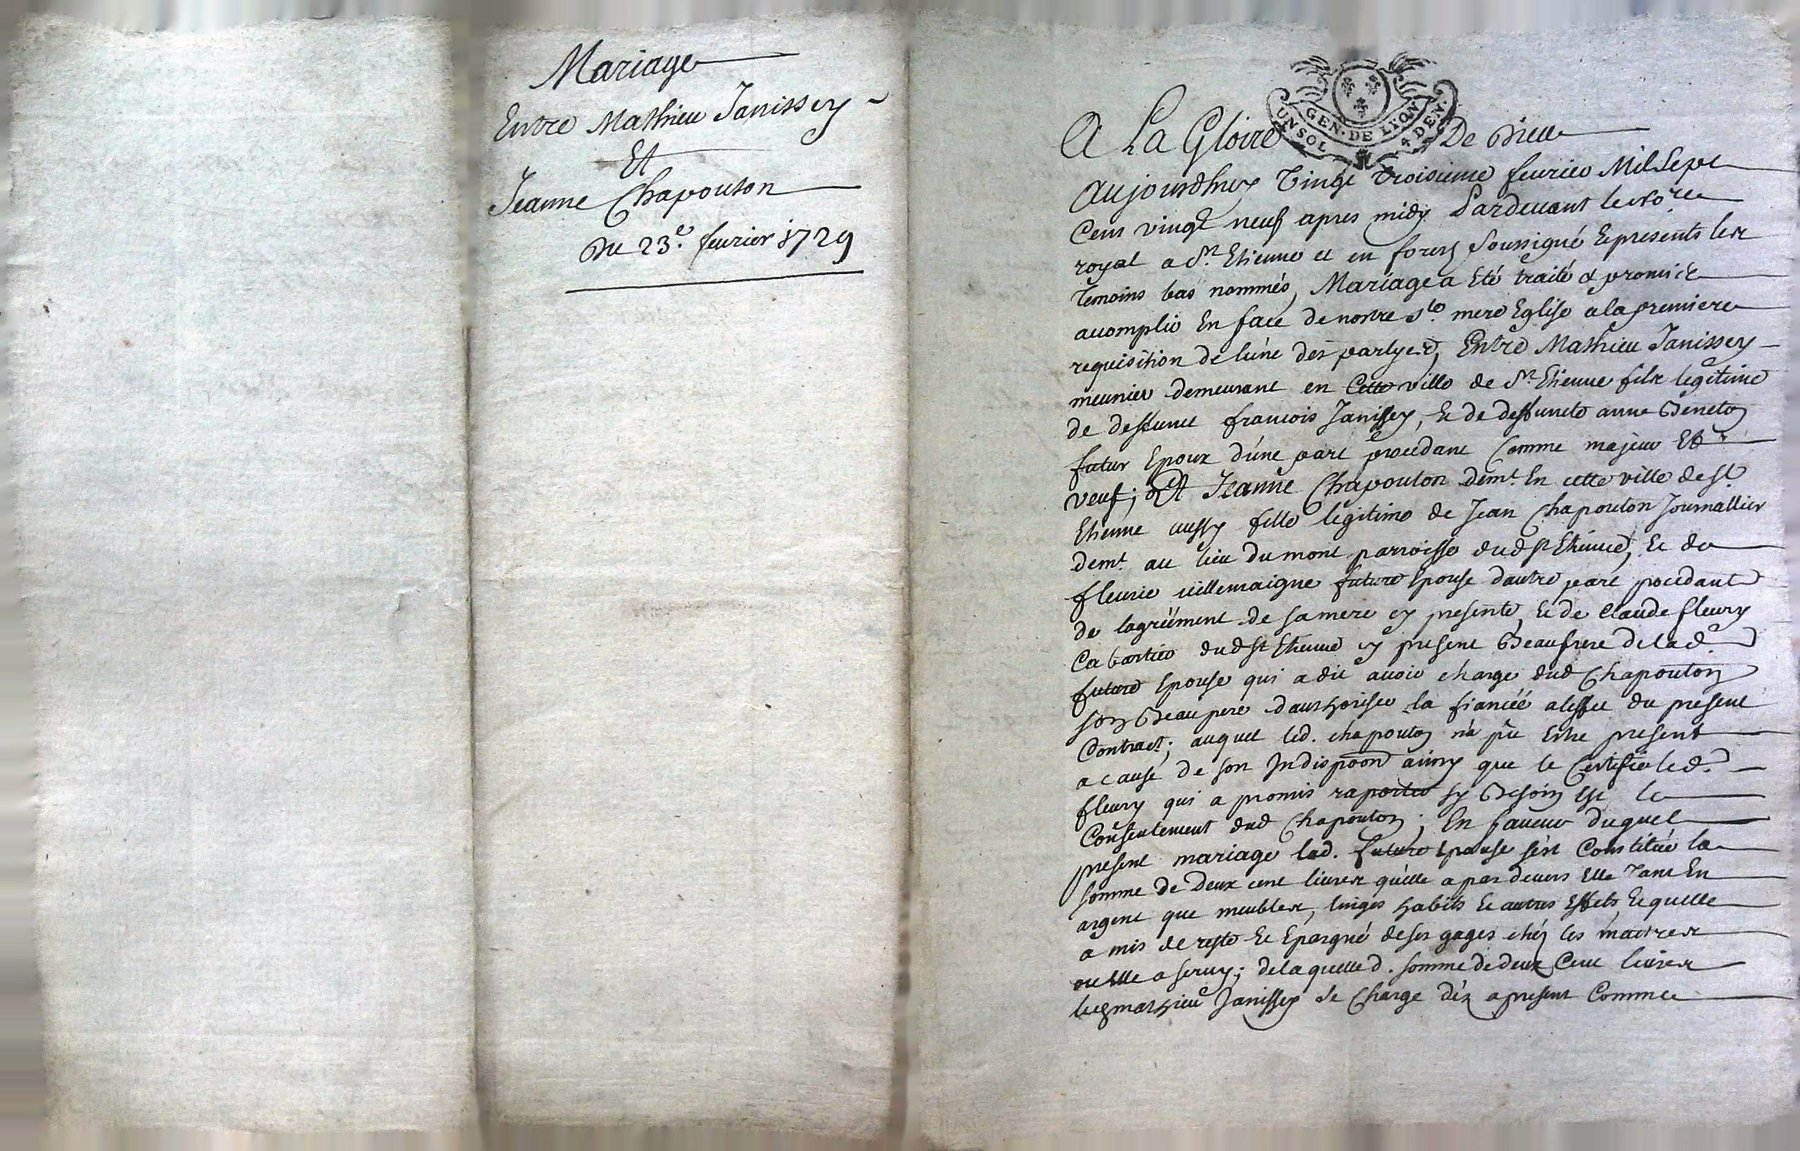 Mariage
Entre Mathieu Janissey
Et
Jeanne Chapouton
Du 23e. fevrier 1729
GEN. DE LYON
UN SOL 4 DEN.
A La Gloire De Dieu
Aujourdhuy Vingt troisieme fevrier Mil Sept
Cens vingt neuf apres midy Pardevant le no.re
royal a St. Etienne et en forest Soussigné Et presents les
temoins bas nommés, Mariage a été traité & promis
acomplir En face de nostre Ste. mere Eglise a la premiere
requisition de lúne des partyes, Entre Mathieu Janissey
meunier demeurant en Cette ville de St. Etienne fils legitime
de deffunct francois Janissey, & de deffuncte anne Beneton
futur Epoux d'une part procedant Comme majeur Et
veuf; Et Jeanne Chapouton demt. En cette ville de St.
Etienne aussy fille legitime de Jean Chapouton Journallier
demt. au lieu du mont parroisse dud St Etienne, & de
fleurie villemaigne future Epouse dautre part procedante
de lagréement de sa mere cy presente, & de Claude fleury
Cabartier dud St Etienne cy present Beaufrere de lad.
future Epouse qui a dit avoir charge dud Chapouton
son Beaupere dauthoriser la fiancéé a leffet du present
Contract, auquel led. chapouton n'a pu Estre present
a cause de son Indispoon ainsy que le Certifie led.
fleury qui a promis raporter sy Besoin Est le
Consentement dud Chapouton; En faveur duquel
present mariage lad. future Epouse s'est Constituée la
somme de Deux cent livres qu'elle a par devers Elle Tant En
argent que meubles, linges habits & autres Effets, & quelle
a mis de reste & Epargné de ses gages chés les maitres
ou Elle a servy; de laquelle d. somme de deux Cent livres
led mathieu Janissey se charge dés a present Comme